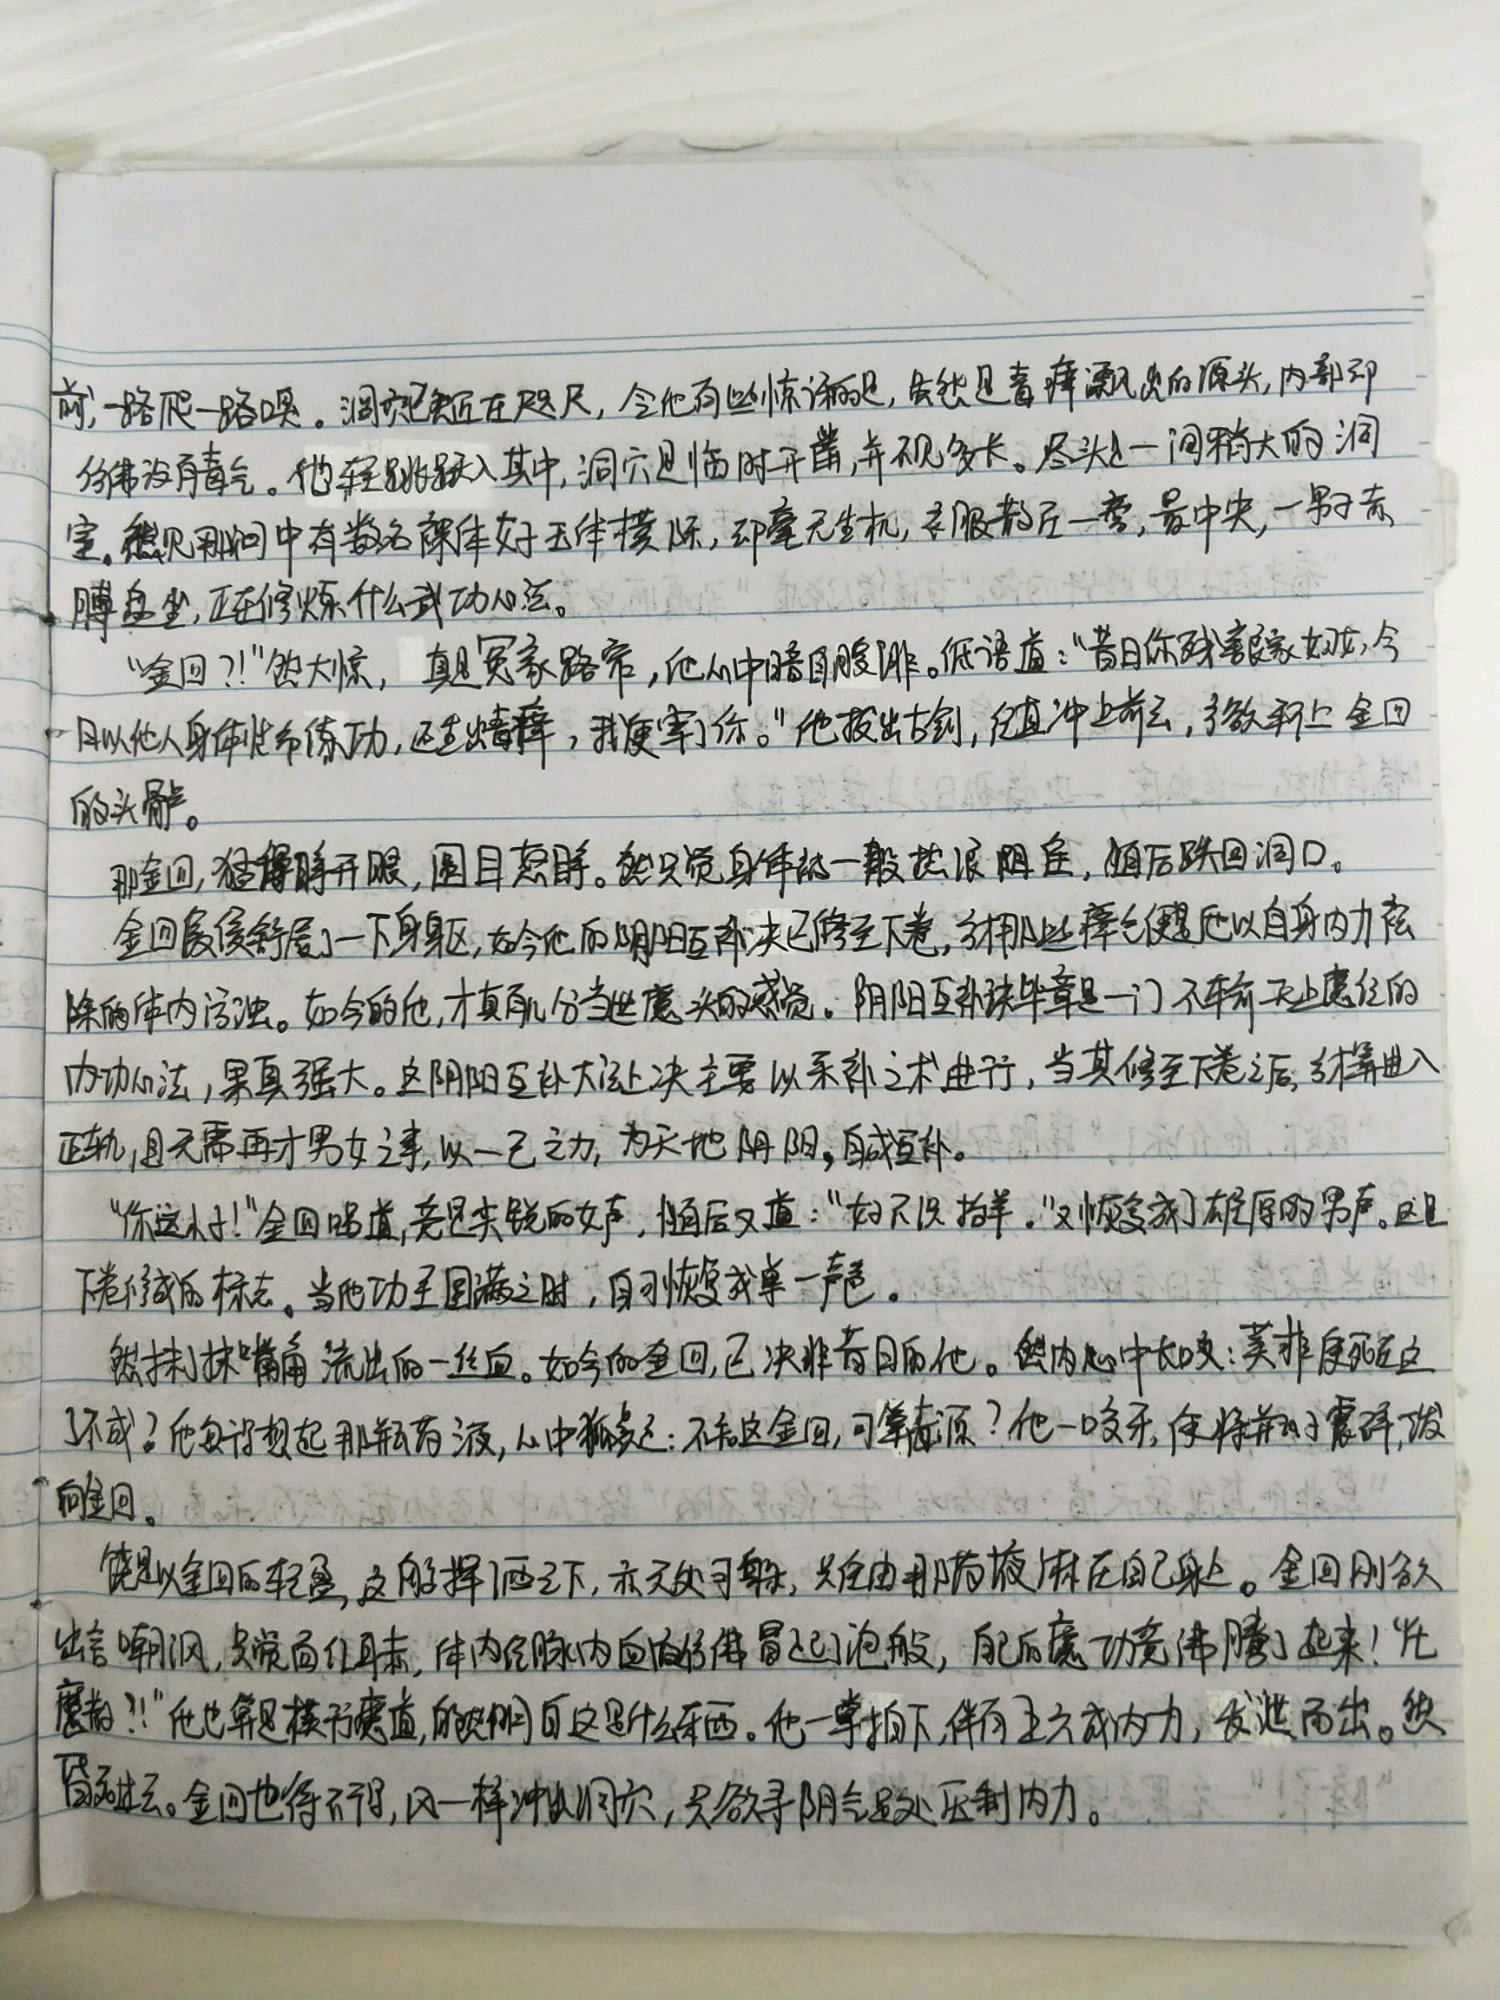 前,一路爬一路嗅。洞穴已然近在咫尺,令他有些惊讶的是,虽然是毒瘴飘出的源头,内部却
仿佛没有毒气。他轻跳跃入其中,洞穴是临时开凿,并不见多长。尽头是一间稍大的洞
室。然见那洞中有数名裸体女子玉体横陈,却毫无生机,衣服散在一旁,最中央,一男子赤
膊盘坐,正在修炼什么武功心法。
“金回?!”然大惊, 真是冤家路窄,他心中暗自腹诽。低语道:“昔日你残害良家妇女,今
日以他人身体性命练功,还生出毒瘴,我便宰了你。”他拔出古剑,径直冲上前去,欲斩上金回
的头骨。
那金回,猛得睁开眼,圆目怒睁。然只觉身体被一股热浪阻住,随后跌回洞口。
金回缓缓舒展了一下身躯,如今他的阴阳互补决已修至下卷,那些瘴气便是他以自身内力祛
除的体内污浊。如今的他,才真有几分当世魔头的感觉。阴阳互补诀毕竟是一门不输天上魔经的
内功心法,果真强大。这阴阳互补大法上决主要以采补之术进行,当其修至下卷之后,才算进入
正轨,且无需再才男女之事,以一己之力,为天地阴阳,自成互补。
“你这小子!”金回喝道,竟是尖锐的女声,随后又道:“好不识抬举。”又恢复成了雄厚的男声。这是
下卷修成的标志。当他功至圆满之时,自可恢复成单一声色。
然抹抹嘴角流出的一丝血。如今的金回,已决非昔日的他。然内心中长叹:莫非要死在这
了不成?他每没想起那瓶药液,心中狐疑:不知这金回,可算毒源?他一咬牙,便将瓶子震碎,泼
向金回。
饶是以金回的轻盈,这般挥洒之下,亦无处可躲,只任由那药液淋在自己身上。金回刚欲
出言嘲讽,只觉面红耳赤,体内经脉内血液仿佛冒起了泡般,自己的魔功竟沸腾了起来!“化
魔散?!”他也算是横行魔道,自然明白这是什么东西。他一掌拍下,伴有五六成内力,发泄而出。然
昏死过去。金回也待不得,风一样冲出洞穴,只欲寻阴气足处压制内力。